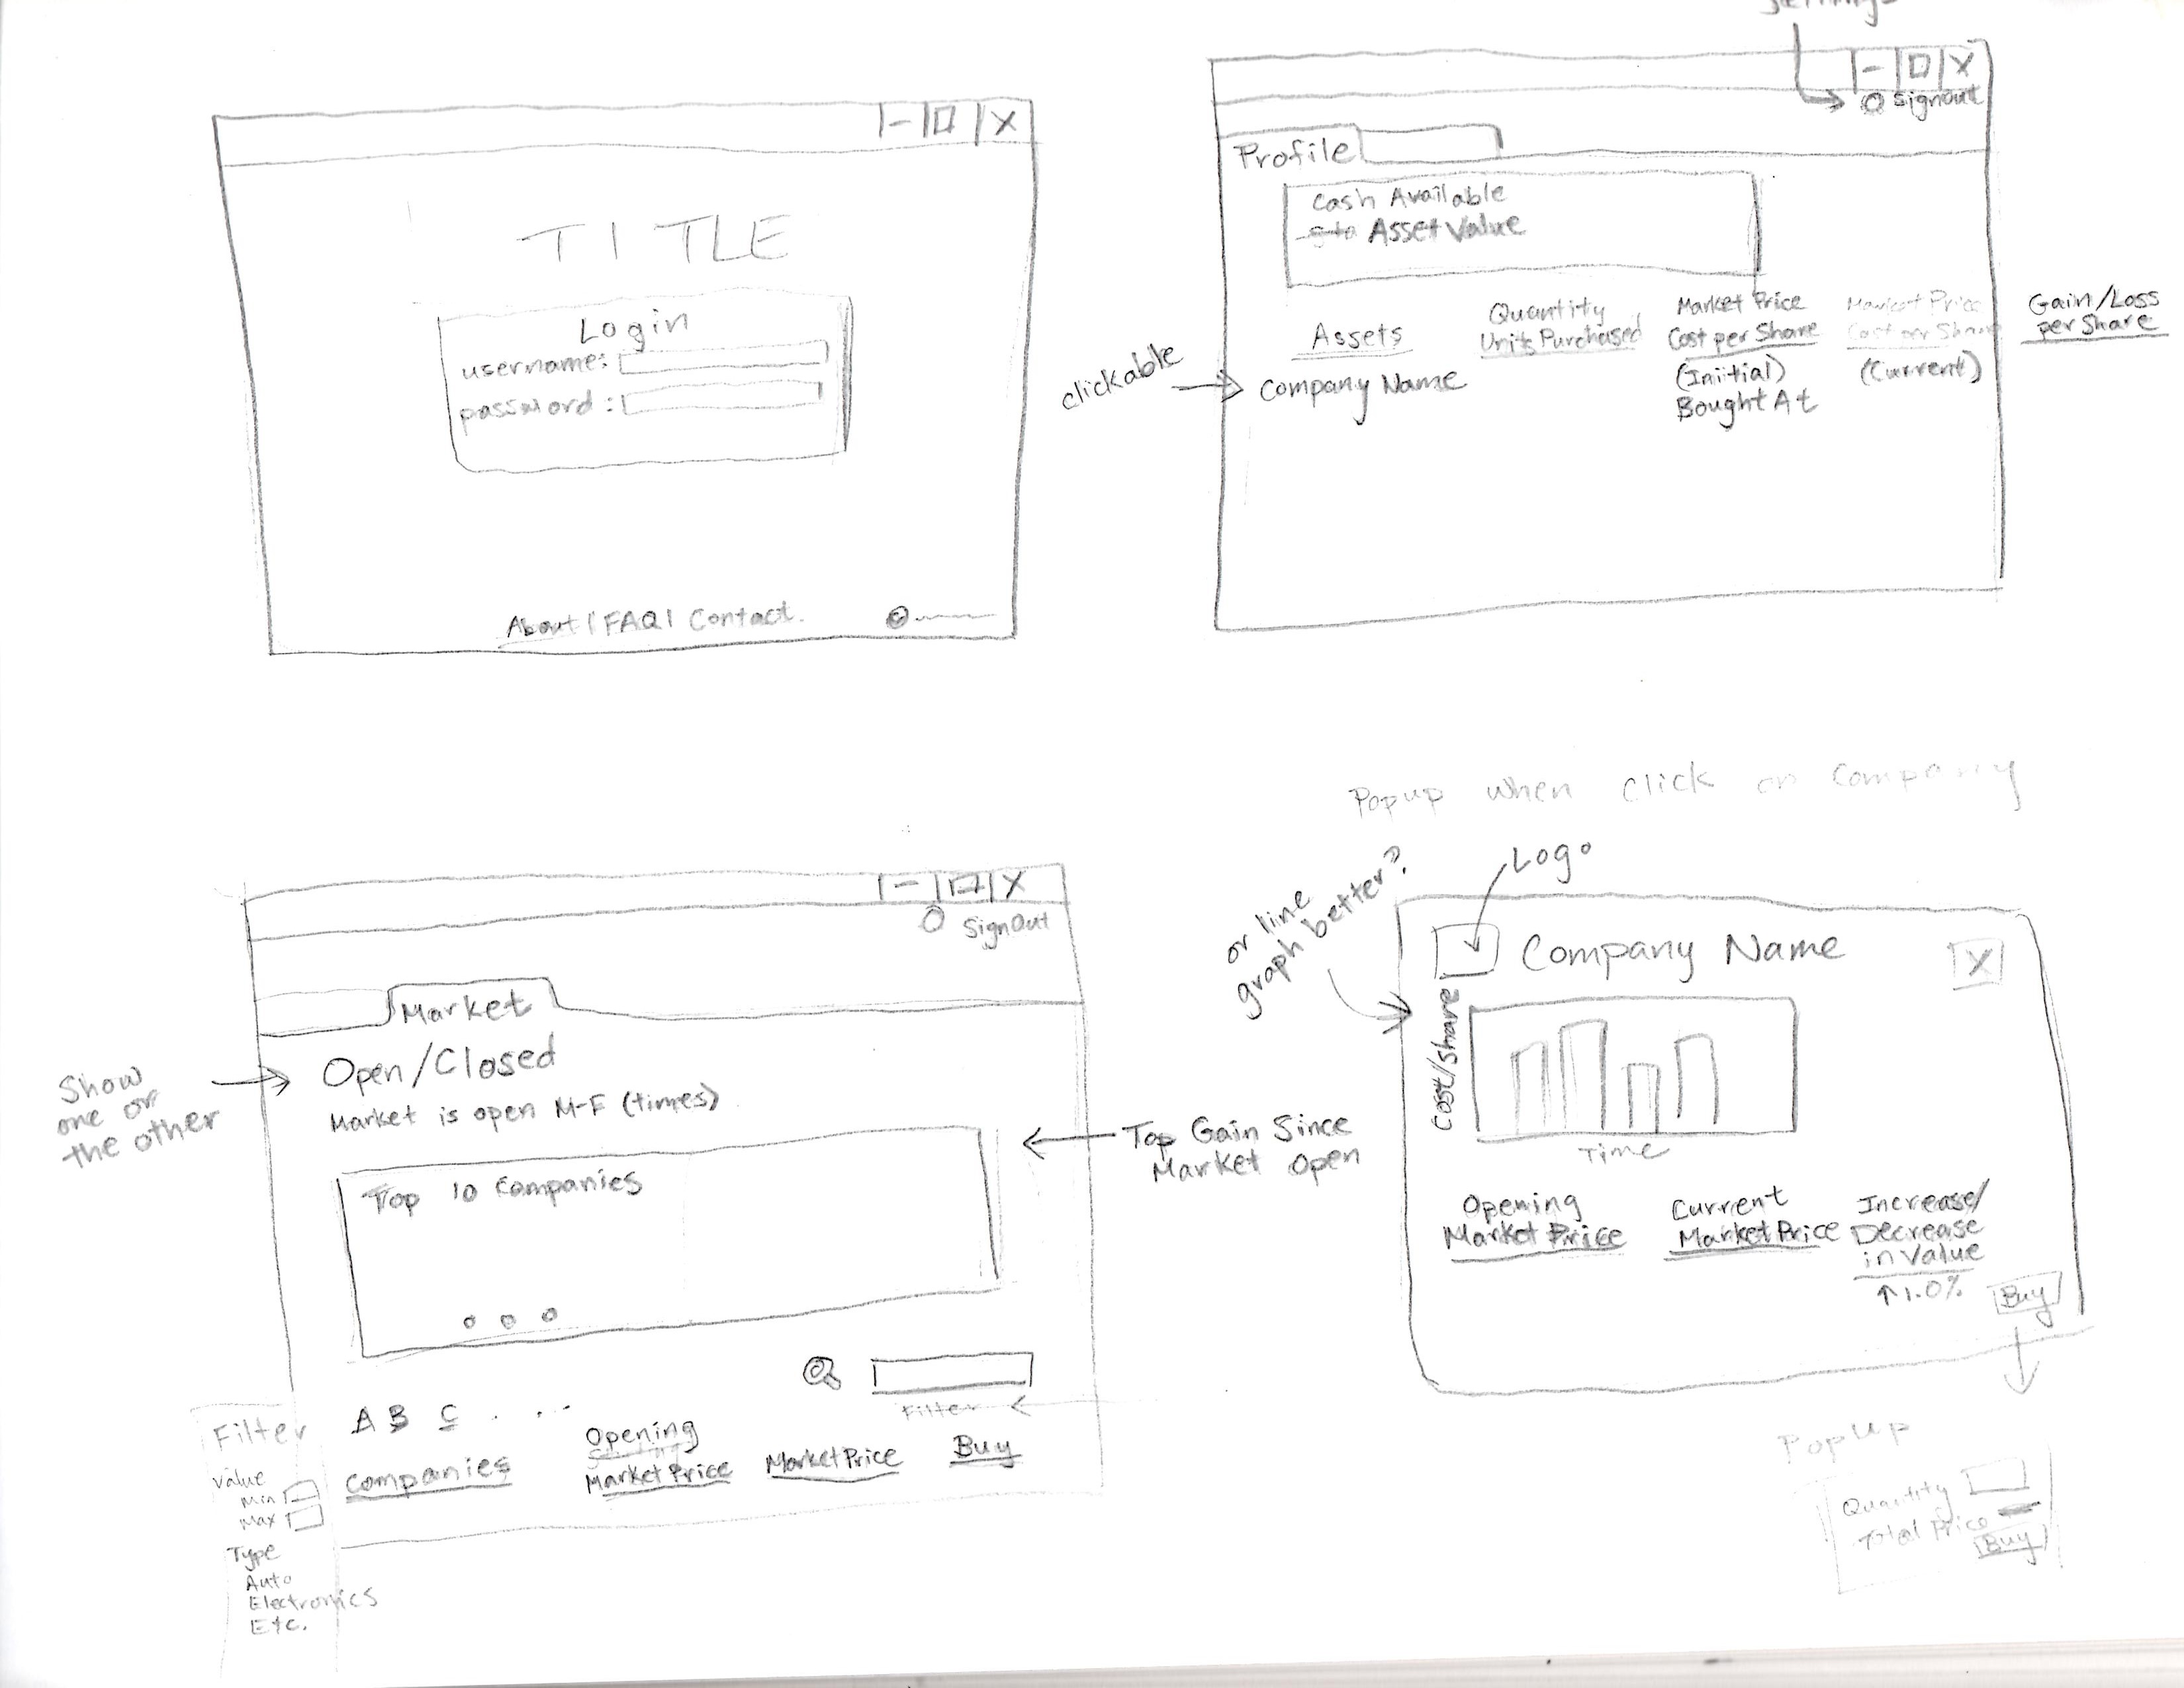 - □ X
TITLE
Login
username:
password:
About | FAQ | Contact.
©
Settings
- □ X
Signout
Profile
Cash Available
Asset Value
Assets
Quantity
Units Purchased
Market Price
Cost per Share
(Iniitial)
Bought At
Market Price
Cost per Share
(Current)
Gain/Loss
per Share
clickable
Company Name
- □ X
SignOut
Market
Open/Closed
Market is open M-F (times)
Show
one or
the other
Top 10 Companies
Top Gain Since
Market Open
Filter
A B C . . .
Companies
Opening
Market Price
Market Price
Buy
Filter
Value
Min
Max
Type
Auto
Electronics
Etc.
Popup when click on Company
Logo
or line
graph better?
Company Name
X
Cost/Share
Time
Opening
Market Price
Current
Market Price
Increase/
Decrease
in Value
↑1.0%
Buy
PopUp
Quantity
Total Price
Buy